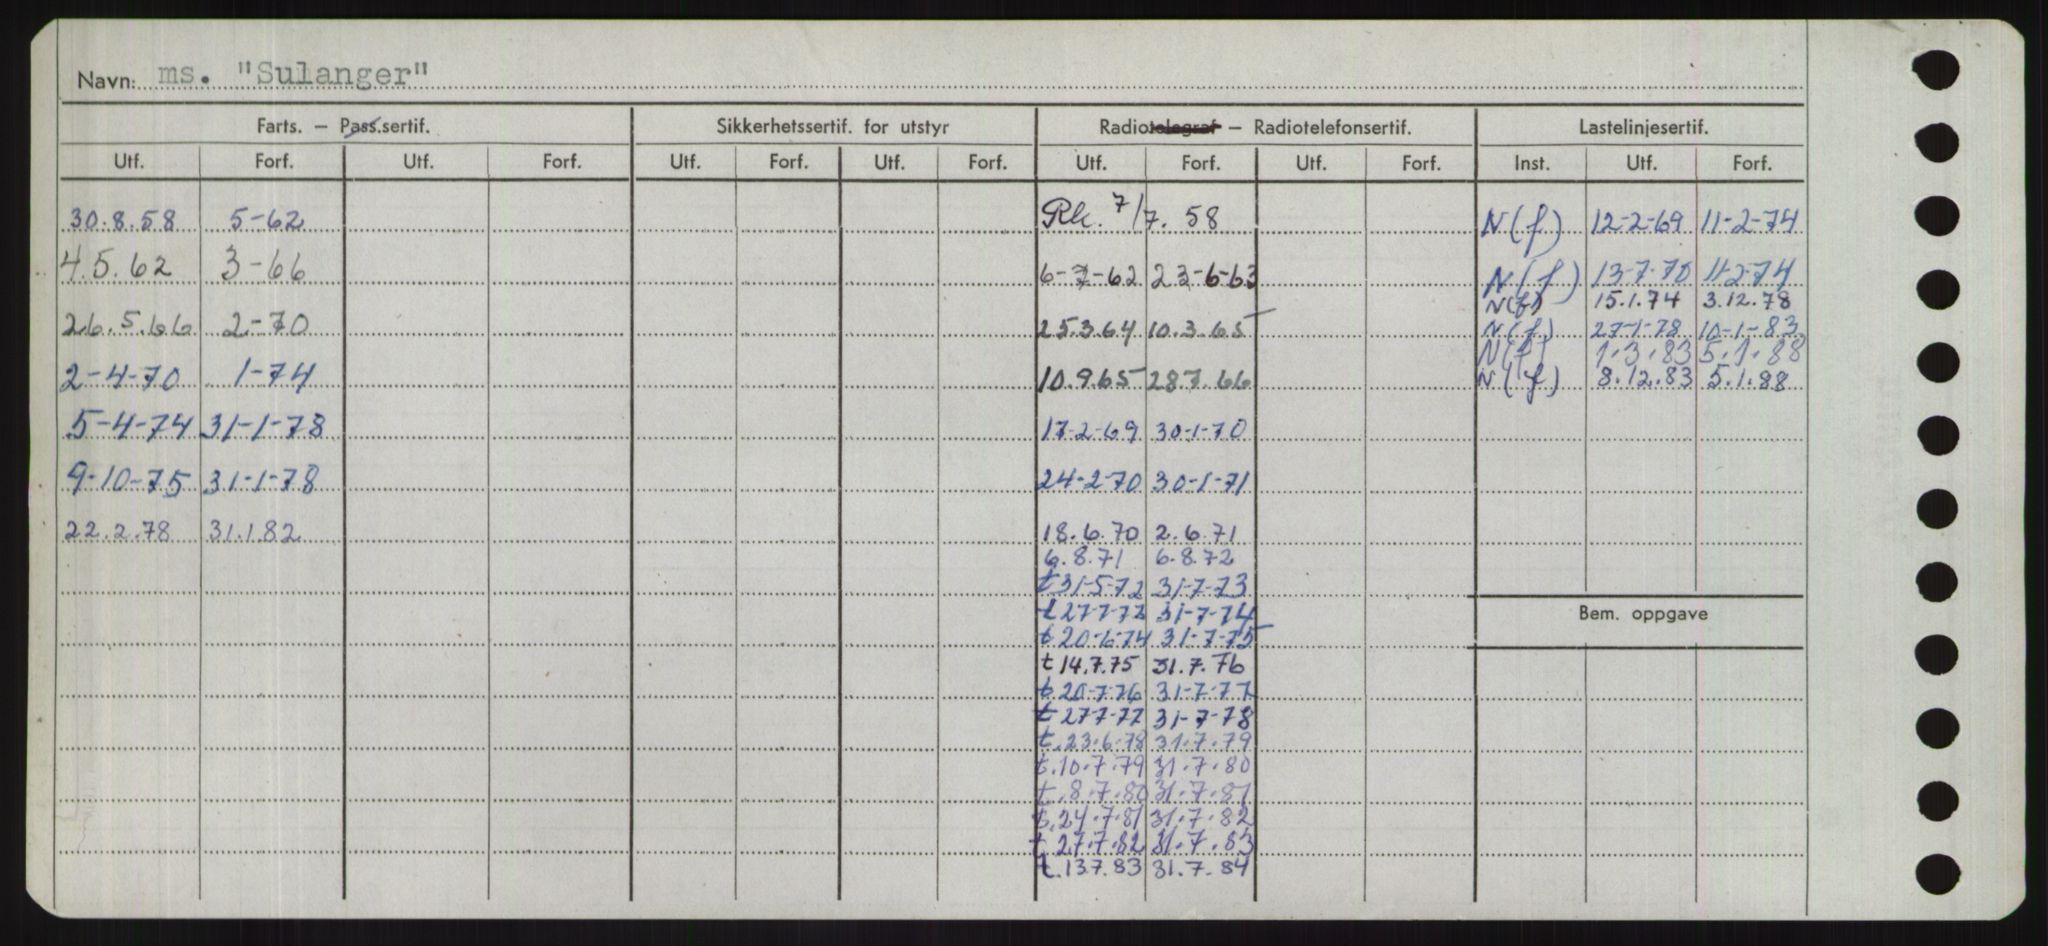 Navn: ms. "Sulanger"
Farts. – Pass.sertif. Sikkerhetssertif. for utstyr Radiotelegraf – Radiotelefonsertif. Lastelinjesertif.
Utf. Forf. Utf. Forf. Utf. Forf. Utf. Forf. Utf. Forf. Utf. Forf. Inst. Utf. Forf.
30.8.58 5-62 Rk. 7/7. 58 N(f) 12-2-69 11-2-74
4.5.62 3-66 6-7-62 23-6-63 N(f) 13-7-70 11-2-74
N(f) 15.1.74 3.12.78
26.5.66 2-70 25.3.64 10.3.65 N(f) 27-1-78 10-1-83
N(f) 1.3.83 5.1.88
2-4-70 1-74 10.9.65 28.7.66 N(f) 8.12.83 5.1.88
5-4-74 31-1-78 17-2-69 30-1-70
9-10-75 31-1-78 24-2-70 30-1-71
22.2.78 31.1.82 18.6.70 2.6.71
6.8.71 6.8.72
t 31-5-72 31-7-73
Bem. oppgave
t 27-7-73 31-7-74
t 20-6-74 31-7-75
t 14.7.75 31.7.76
t 20-7-76 31-7-77
t 27-7-77 31-7-78
t. 23.6.78 31.7.79
t. 10.7.79 31.7.80
t. 8.7.80 31.7.81
t. 24.7.81 31.7.82
t 27.7.82 31.7.83
t. 13.7.83 31.7.84